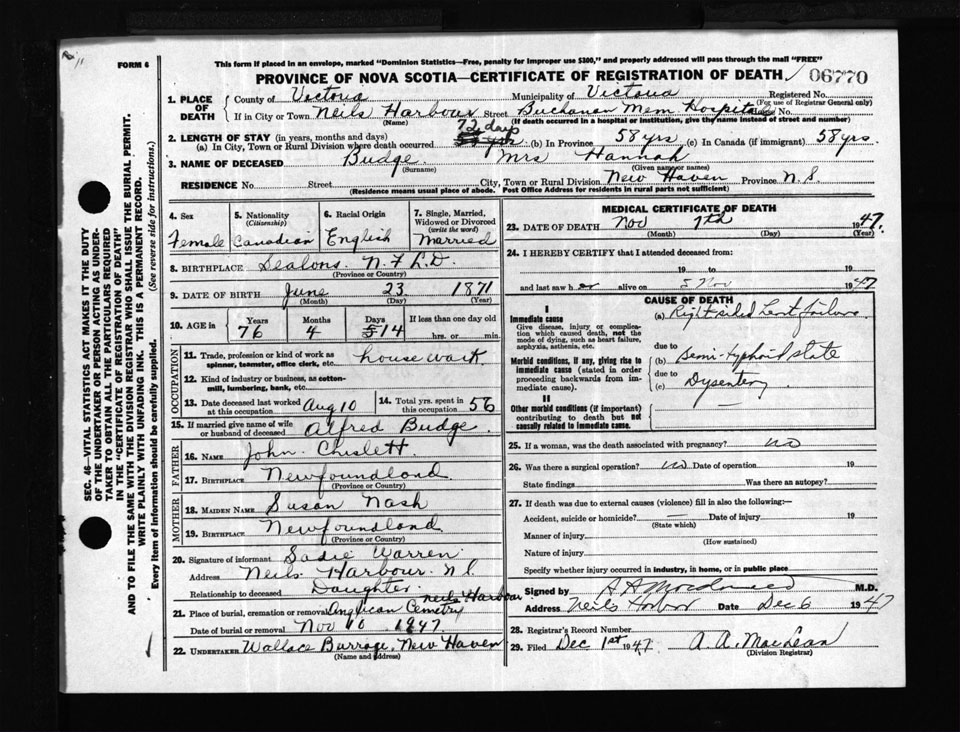 FORM 6
This form if placed in an envelope, marked "Dominion Statistics—Free, penalty for improper use $300," and properly addressed will pass through the mail "FREE"
PROVINCE OF NOVA SCOTIA—CERTIFICATE OF REGISTRATION OF DEATH 06770
SEC. 46—VITAL STATISTICS ACT MAKES IT THE DUTY
OF THE UNDERTAKER OR PERSON ACTING AS UNDER-
TAKER TO OBTAIN ALL THE PARTICULARS REQUIRED
IN THE "CERTIFICATE OF REGISTRATION OF DEATH"
AND TO FILE THE SAME WITH THE DIVISION REGISTRAR WHO SHALL ISSUE THE BURIAL PERMIT.
WRITE PLAINLY WITH UNFADING INK. THIS IS A PERMANENT RECORD.
Every item of information should be carefully supplied. (See reverse side for instructions.)
1. PLACE OF DEATH County of Victoria Municipality of Victoria Registered No.
(For use of Registrar General only)
If in City or Town Neils Harbour Street Buchanan Mem Hospital No.
(Name) (If death occurred in a hospital or institution, give the name instead of street and number)
2. LENGTH OF STAY (in years, months and days) 72 days
(a) In City, Town or Rural Division where death occurred. (b) In Province 58 yrs (c) In Canada (if immigrant) 58 yrs.
3. NAME OF DECEASED Budge Mrs Hannah
(Surname) (Given name or names)
RESIDENCE No. Street City, Town or Rural Division New Haven Province N.S.
(Residence means usual place of abode. Post Office Address for residents in rural parts not sufficient)
4. Sex 5. Nationality (Citizenship) 6. Racial Origin 7. Single, Married, Widowed or Divorced (write the word)
Female Canadian English Married
8. BIRTHPLACE N.F.L.D.
(Province or Country)
9. DATE OF BIRTH June 23 1871
(Month) (Day) (Year)
10. AGE in Years Months Days If less than one day old
76 4 14 hrs. or min.
OCCUPATION
11. Trade, profession or kind of work as spinner, teamster, office clerk, etc. house work
12. Kind of industry or business, as cotton-mill, lumbering, bank, etc.
13. Date deceased last worked at this occupation Aug 10 14. Total yrs. spent in this occupation 56
15. If married give name of wife or husband of deceased Alfred Budge
FATHER
16. NAME John Chislett
17. BIRTHPLACE Newfoundland
(Province or Country)
MOTHER
18. MAIDEN NAME Susan Nash
19. BIRTHPLACE Newfoundland
(Province or Country)
20. Signature of informant Sadie Warren
Address Neils Harbour N.S.
Relationship to deceased Daughter
21. Place of burial, cremation or removal Anglican Cemetry Neils Harbour
Date of burial or removal Nov 10 1947
22. UNDERTAKER Wallace New Haven
(Name and address)
MEDICAL CERTIFICATE OF DEATH
23. DATE OF DEATH Nov 7th 1947
(Month) (Day) (Year)
24. I HEREBY CERTIFY that I attended deceased from:
19 to 19
and last saw her alive on 5 Nov 1947
CAUSE OF DEATH
I
Immediate cause
Give disease, injury or complication which caused death, not the mode of dying, such as heart failure, asphyxia, asthenia, etc.
(a) Right sided heart failure
due to
Morbid conditions, if any, giving rise to immediate cause (stated in order proceeding backwards from immediate cause).
(b) Semi-typhoid state
due to
(c) Dysentery
II
Other morbid conditions (if important) contributing to death but not causally related to immediate cause.
25. If a woman, was the death associated with pregnancy? no
26. Was there a surgical operation? no Date of operation 19
State findings Was there an autopsy?
27. If death was due to external causes (violence) fill in also the following:—
Accident, suicide or homicide? — Date of injury 19
(State which)
Manner of injury
(How sustained)
Nature of injury
Specify whether injury occurred in industry, in home, or in public place
Signed by M.D.
Address Neils Harbor Date Dec 6 1947
28. Registrar's Record Number
29. Filed Dec 1st 1947 A. A. MacLean
(Division Registrar)